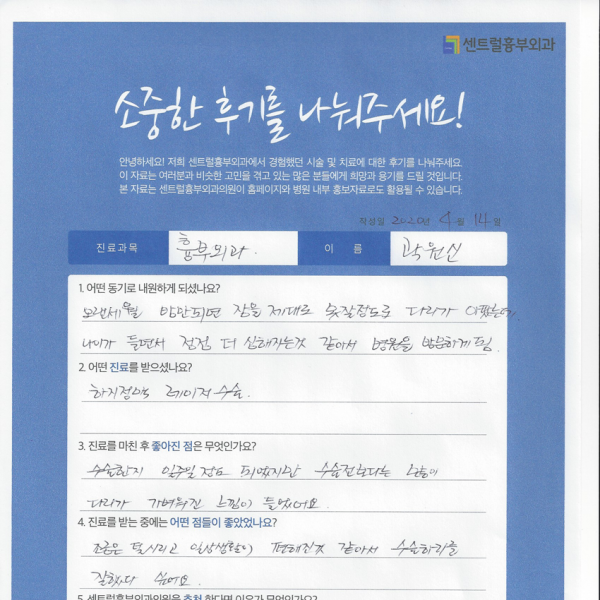 센트럴흉부외과
소중한 후기를 나눠주세요!
안녕하세요! 저희 센트럴흉부외과에서 경험했던 시술 및 치료에 대한 후기를 나눠주세요.
이 자료는 여러분과 비슷한 고민을 겪고 있는 많은 분들에게 희망과 용기를 드릴 것입니다.
본 자료는 센트럴흉부외과의원이 홈페이지와 병원 내부 홍보자료로도 활용될 수 있습니다.
작성일 2020년 4월 14일
진료과목 흉부외과. 이 름 곽원신
1. 어떤 동기로 내원하게 되셨나요?
오랜세월 밤만되면 잠을 제대로 못잘정도로 다리가 아팠는데
나이가 들면서 점점 더 심해지는것 같아서 병원을 방문하게됨.
2. 어떤 진료를 받으셨나요?
하지정맥 레이저 수술.
3. 진료를 마친 후 좋아진 점은 무엇인가요?
수술한지 일주일 정도 되었지만 수술전보다는
다리가 가벼워진 느낌이 들었어요.
4. 진료를 받는 중에는 어떤 점들이 좋았었나요?
조금은 일상생활이 편해진것 같아서 수술하기를
잘했다 싶어요.
5. 센트럴흉부외과의원을 추천 한다면 이유가 무엇인가요?